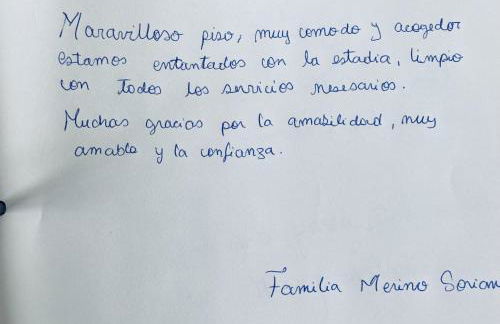 Maravilloso piso, muy comodo y acogedor
estamos entantados con la estadia, limpio
con todos los servicios nesesarios.
Muchas gracias por la amabilidad, muy
amable y la confianza.
Familia Merino Sorian